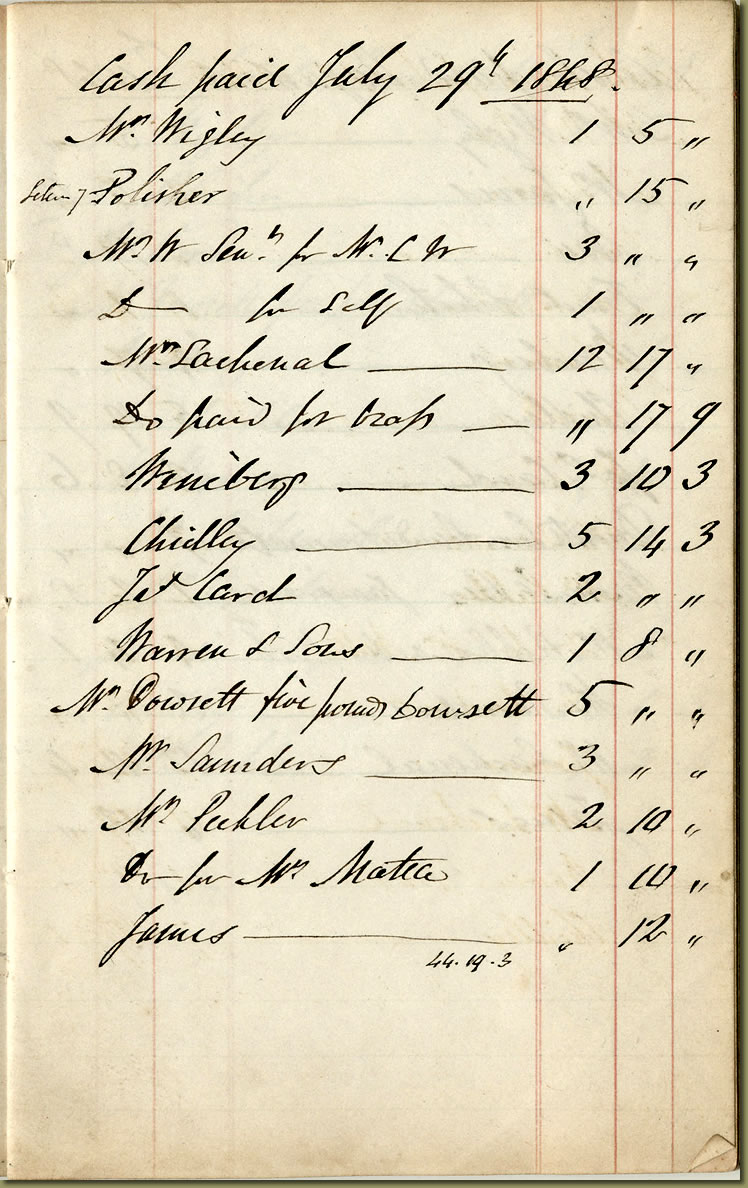 Cash paid July 29th 1848.
Mr Wigley 1 5 "
Polisher " 15 "
Mr W Senr for Mr C W 3 " "
D— for Self 1 " "
Mr Lachenal — 12 17 "
Do paid for brass — " 17 9
— 3 10 3
Chidley — 5 14 3
Jas Card 2 " "
Warren & Sons — 1 8 "
Mr Dowsett five pounds Dowsett 5 " "
Mr Saunders — 3 " "
Mr Pichler 2 10 "
Do for Mr 1 10 "
James — " 12 "
44.19.3